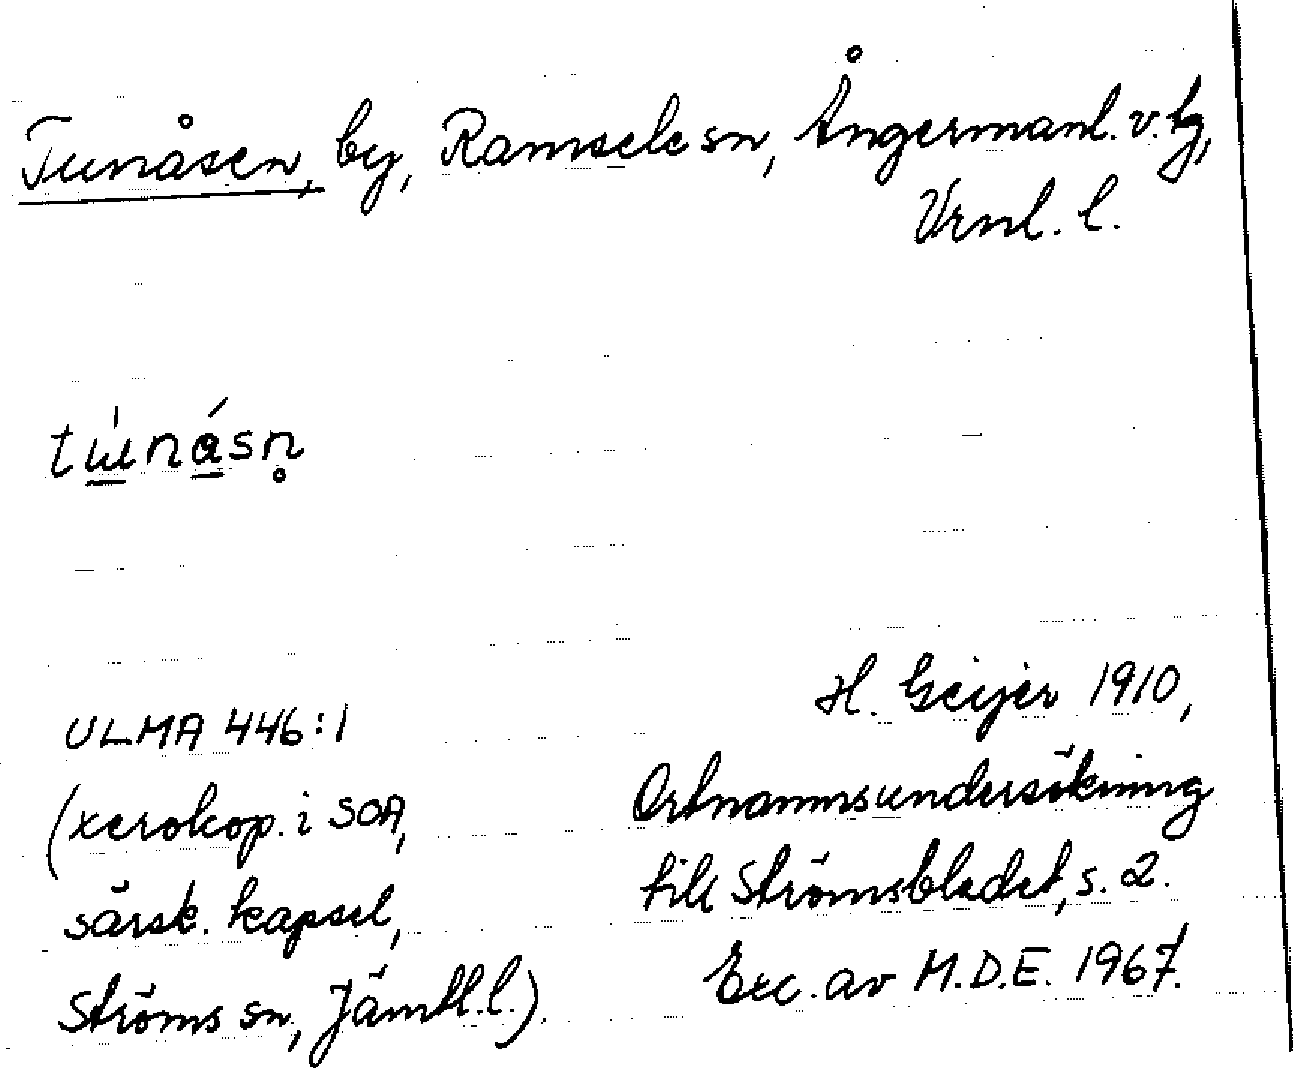 Tunåsen, by, Ramsele sn, Ångermanl. v. tg,
Vrnl. l.
tu̲̍ná̲sn̥
ULMA 446:1
(xerokop. i SOA,
särsk. kapsel,
Ströms sn, Jämtl. l.)
H. Geijer 1910,
Ortnamnsundersökning
till Strömsbladet, s. 2.
Exc. av M.D.E. 1967.